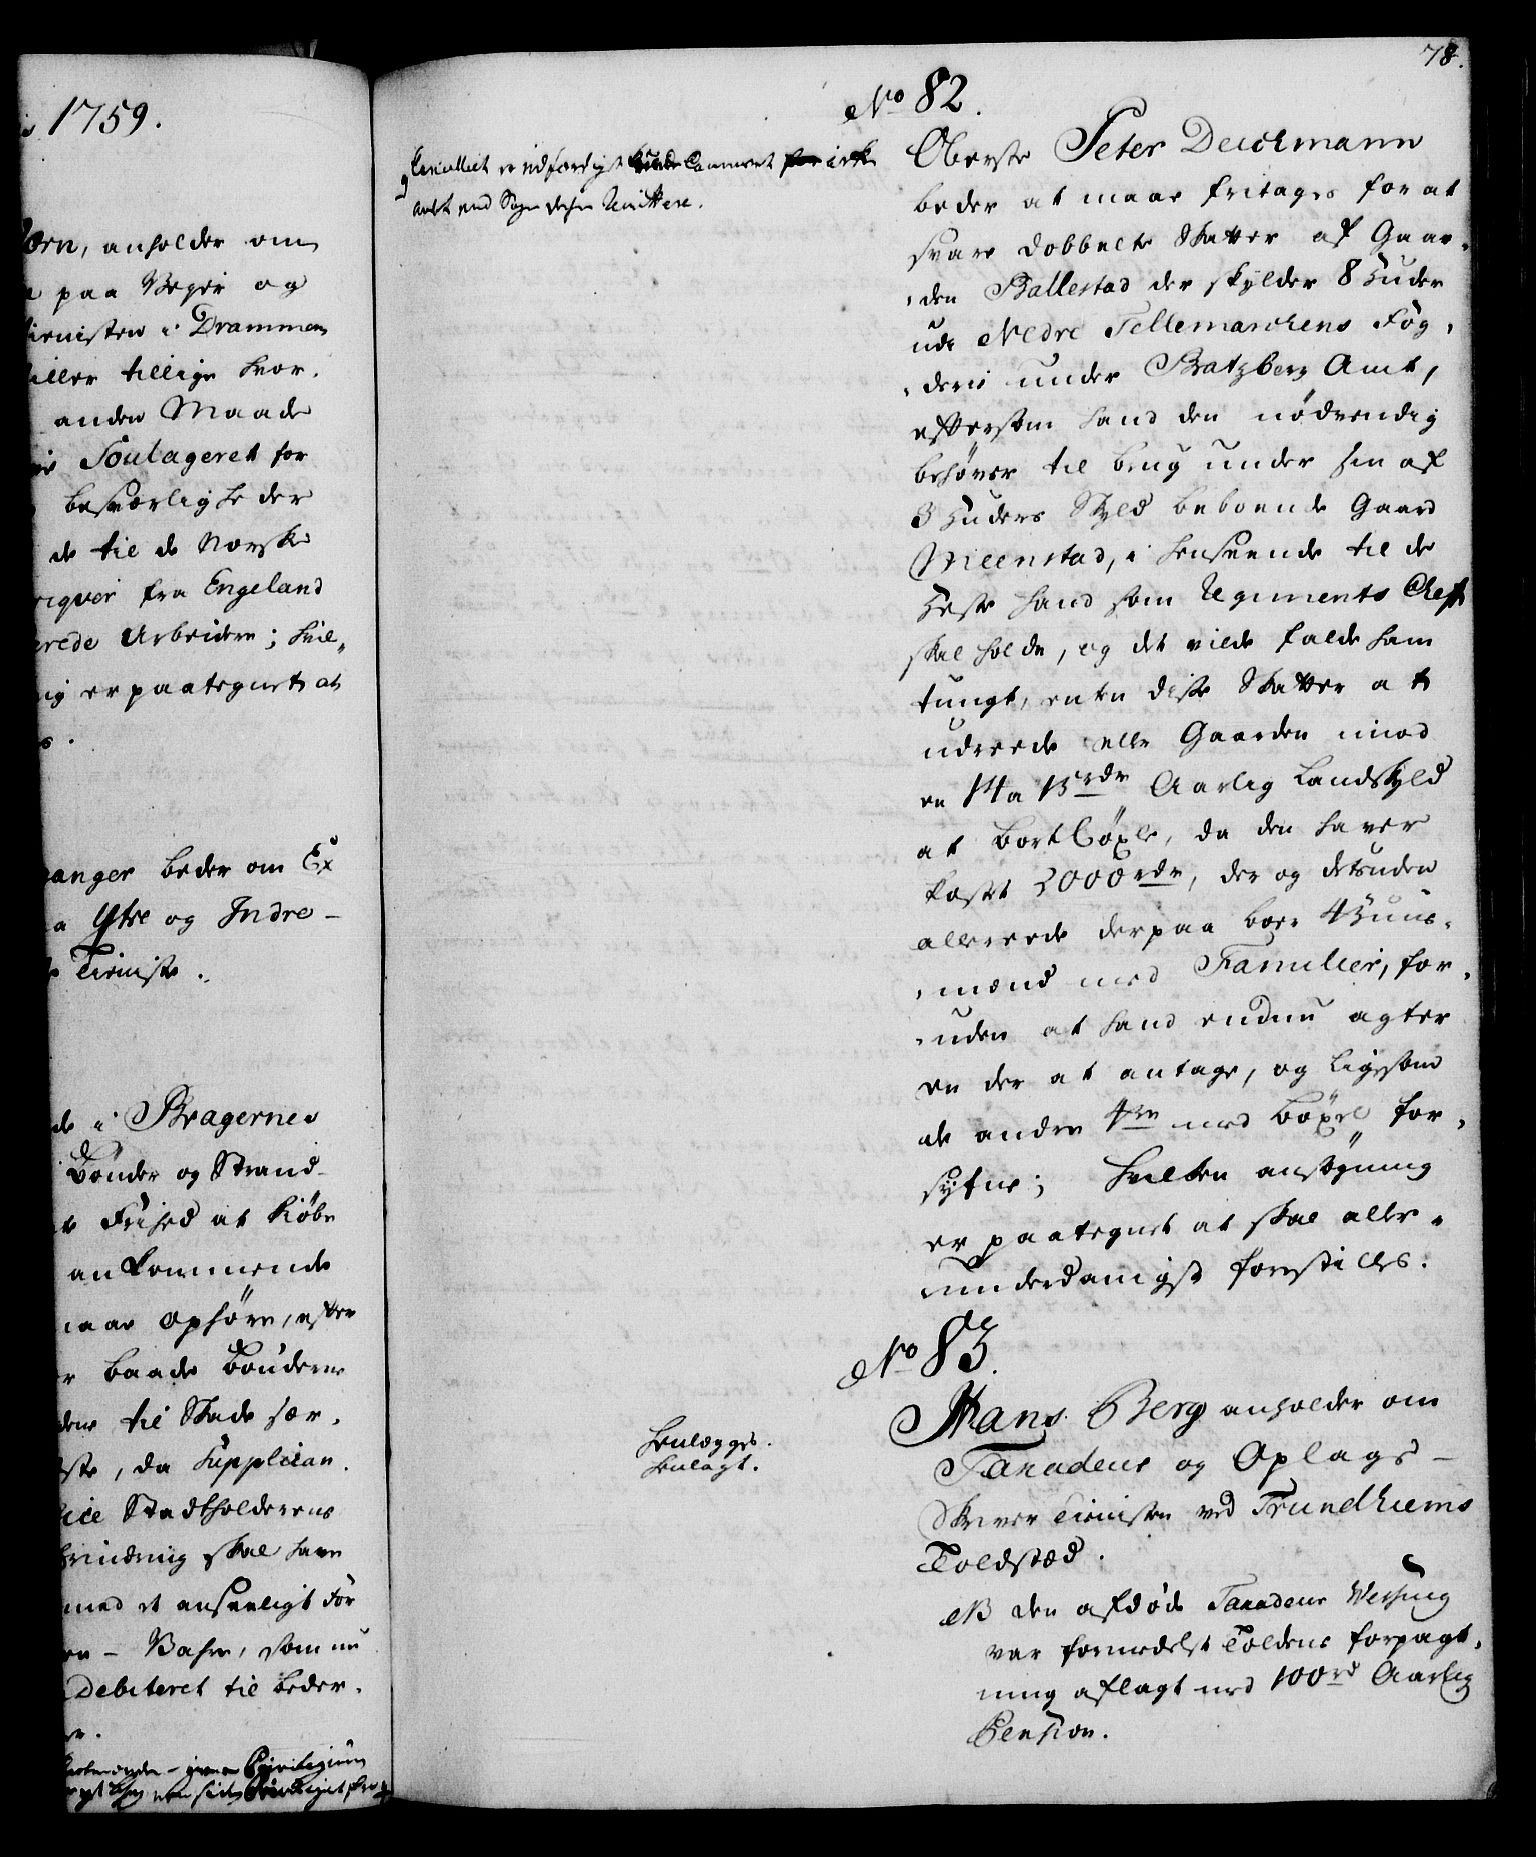 1759.
ærn, anholder om
paa Veyer og
tienisten i Drammen
tiller tillige hvor-
anden Maade
Soulageret for
besværligheder
de til de Norske
riqver fra Engeland
erede Arbeidere; hvil-
ing er paategnet at
anger beder om Ex
a Ytre og Indre-
Tieniste.
de i Bragernes
Bönder og Strand-
Frihed at kiöbe
ankommende
maae ophöre, efter
r baade Bönderne
dene til Skade sær-
ste, da Supplican-
Vice Stadtholderens
skal have
med et anseeligt For
en - Vahre, som nu
Debiteret til beder-
er.
78.
No 82.
Oberste Peter Deichmann
beder at maae fritages for at
svare dobbelte Skatter af Gaar-
-den Ballestad der skylder 8 Huder
udi Nedre Tellemarchens Fög-
-derie under Bratzberg Amt,
eftersom hand den nödvendig
behöver til brug under sin af
3 Huders Skyld beboende Gaard
Meenstad, i henseende til de
Heste hand som Regiments Cheff
skal holde, og det vilde falde ham
tungt, enten disse Skatter at
udreede eller Gaarden imod
en 14 a 15 rdr Aarlig Landskyld
at bortböxle, da den haver
kostet 2000 rdr, der og desuden
allereede derpaa boer 4 Huus-
-mænd med Familier, for-
-uden at hand endnu agter
en der at antage, og ligesom
de andre 4re med böxel for-
syne; hvilken ansögning
er paategnet at skal aller-
underdanigst forestilles.
No 83.
Hans Berg anholder om
Tanadeur og Oplags-
Skriver Tienisten ved Trundhiems
Toldsted.
NB den afdöde Tanadeur Wessing
var formedelst Toldens forpagt-
ning aflagt med 100 rd Aarlig
Pension.
Henlægges.
Henlagt.